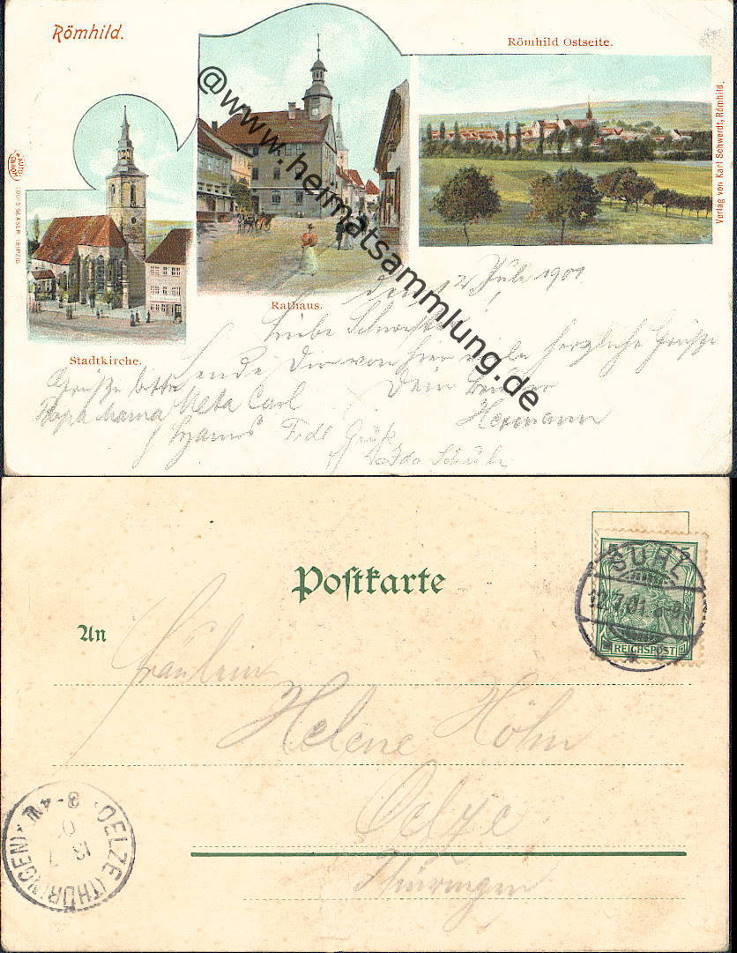 Römhild.
Römhild Ostseite.
Verlag von Karl Schwerdt, Römhild.
@www.heimatsammlung.de
Rathaus.
Stadtkirche.
12 Juli 1901
Liebe Schwester
sende Dir von hier viele herzliche Grüße
Dein Bruder
Hermann
Grüße bitte
Papa Mama Meta Carl
Gruß
Postkarte
An
Fräulein
Helene Höhn
Oelze
Thüringen
SUHL
12.7.01. 8-9N
REICHSPOST
OELZE (THÜRINGEN)
13 7 01
3-4N